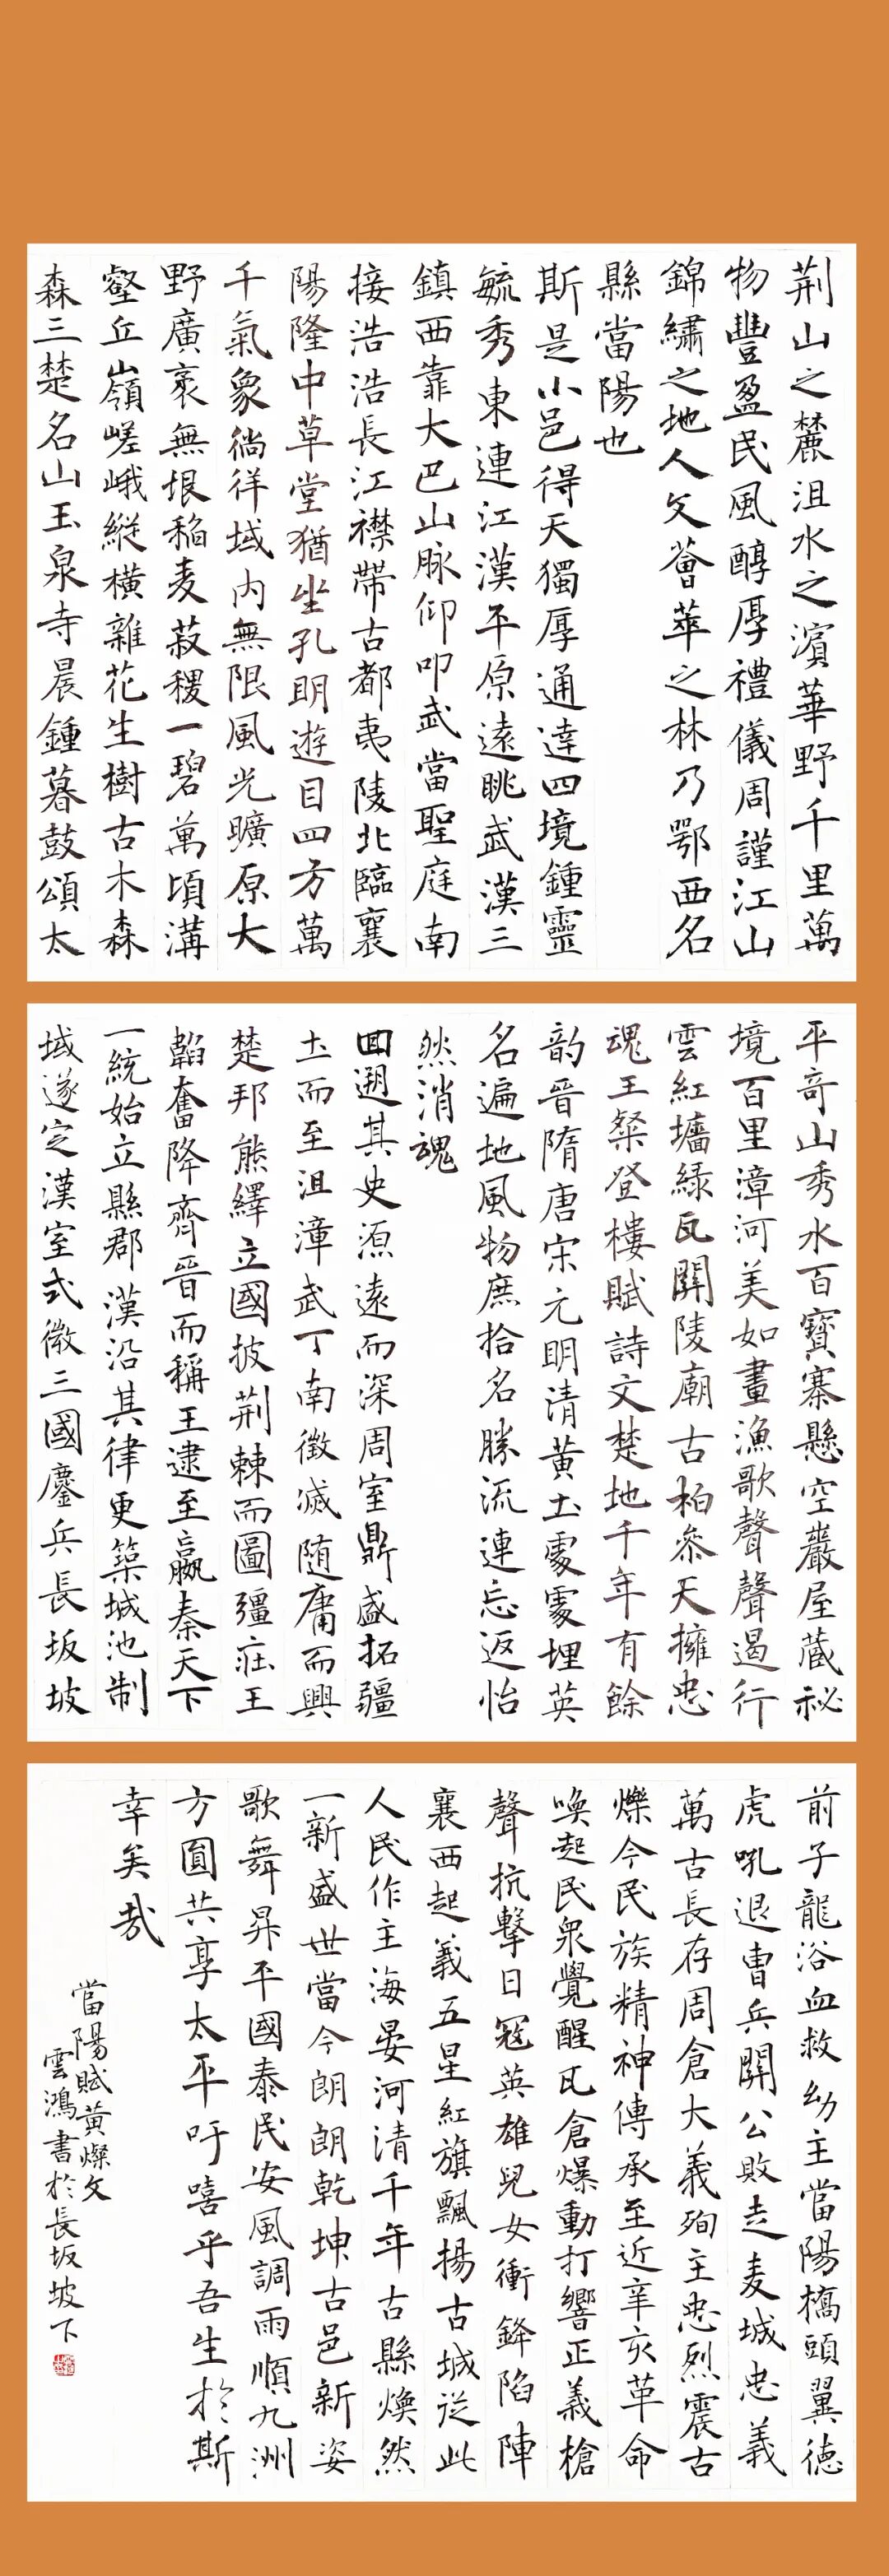 荆山之麓沮水之濱華野千里萬
物豐盈民風醇厚禮儀周謹江山
錦繡之地人文薈萃之林乃鄂西名
縣當陽也
斯是小邑得天獨厚通達四境鍾靈
毓秀東連江漢平原遠眺武漢三
鎮西靠大巴山脉仰叩武當聖庭南
接浩浩長江襟帶古都夷陵北臨襄
陽隆中草堂猶坐孔明遊目四方萬
千氣象徜徉域内無限風光曠原大
野廣袤無垠稻麦菽稷一碧萬頃溝
壑丘嶺嵯峨縱橫雜花生樹古木森
森三楚名山玉泉寺晨鍾暮鼓頌太
平奇山秀水百寶寨懸空巖屋蔵祕
境百里漳河美如畫漁歌聲聲遏行
雲紅墻緑瓦關陵廟古柏叅天擁忠
魂王粲登樓賦詩文楚地千年有餘
韵晋隋唐宋元明清黄土處處埋英
名遍地風物庶拾名勝流連忘返怡
然消魂
回遡其史源遠而深周室鼎盛拓疆
土而至沮漳武丁南徵滅随庸而興
楚邦熊繹立國披荆棘而圖彊莊王
韜奮降齊晋而稱王逮至嬴秦天下
一統始立縣郡漢沿其律更築城池制
域遂定漢室式微三國鏖兵長坂坡
前子龍浴血救幼主當陽橋頭翼德
虎吼退曹兵關公敗走麦城忠義
萬古長存周倉大義殉主忠烈震古
爍今民族精神傳承至近辛亥革命
唤起民衆覺醒瓦倉爆動打響正義槍
聲抗擊日冦英雄兒女衝鋒陷陣
襄西起義五星紅旗飄揚古城從此
人民作主海晏河清千年古縣焕然
一新盛世當今朗朗乾坤古邑新姿
歌舞昇平國泰民安風調雨順九洲
方圓共享太平吁嘻乎吾生於斯
幸矣哉
當陽賦黄燦文
雲鴻書於長坂坡下